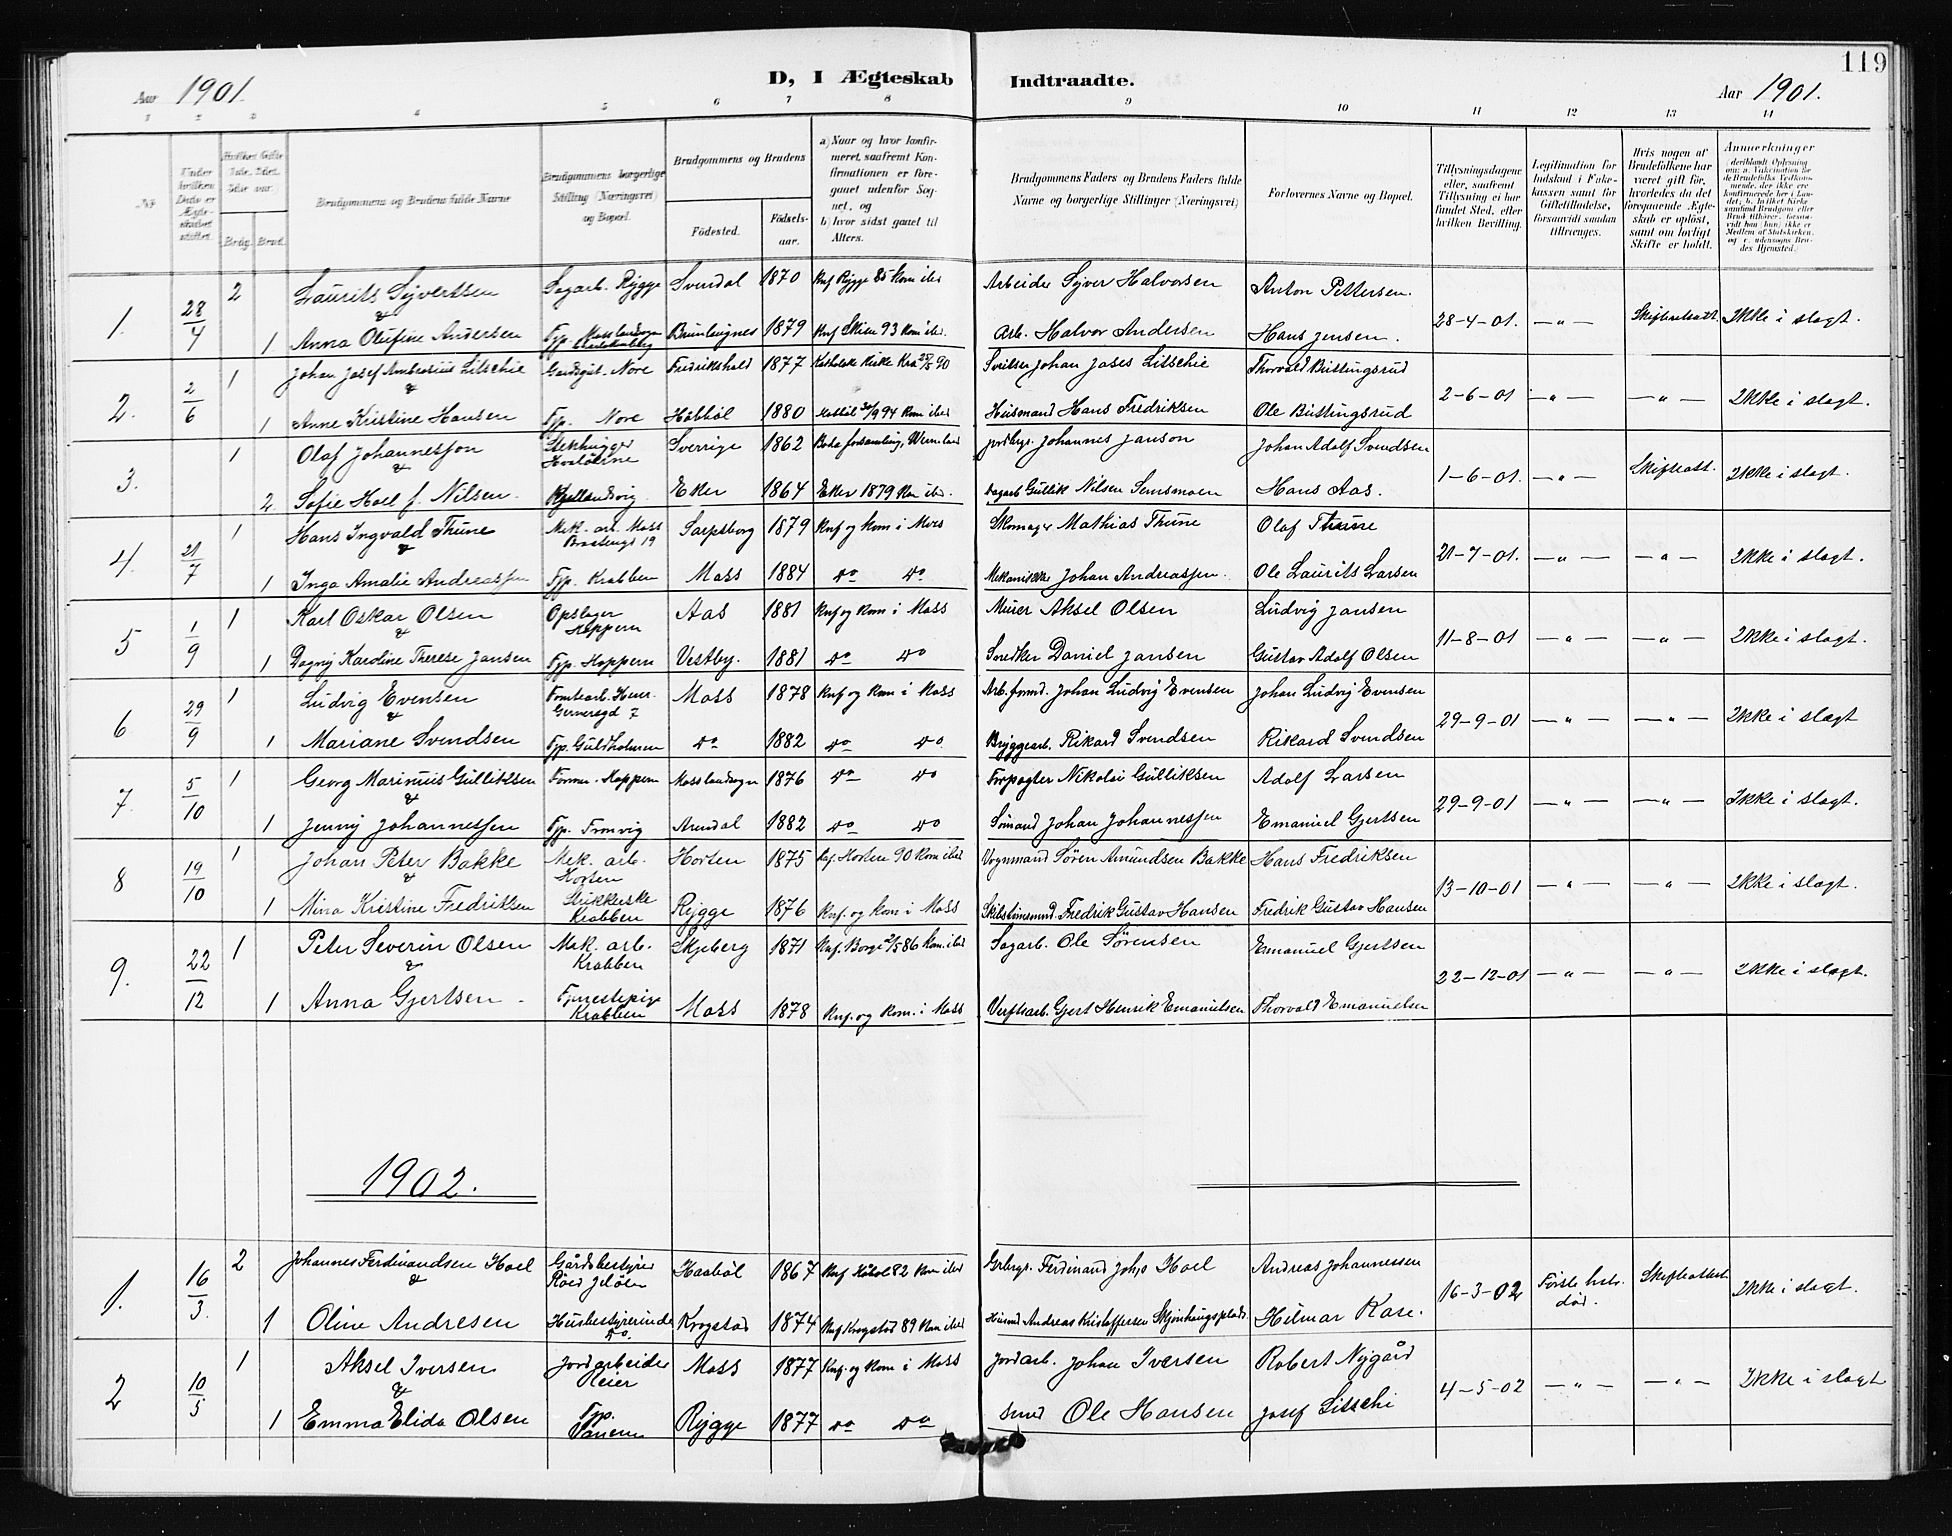 119
Aar 1901.
D, I Ægteskab Indtraadte.
Aar 1901.
1 2 3 4 5 6 7 8 9 10 11 12 13 14
No
Under hvilken Dato er Ægteskabet stiftet.
Brudg. Brud.
Brudgommens og Brudens fulde Navne
Brudgommens borgerlige Stilling (Næringsvei) og Bopæl.
Brudgommens og Brudens
Fødested.
Fødselsaar.
a) Naar og hvor konfirmeret, saafremt Konfirmationen er foregaaet udenfor Sognet, og
b) hvor sidst gaaet til Alters.
Brudgommens Faders og Brudens Faders fulde Navne og borgerlige Stillinger (Næringsvei)
Forlovernes Navne og Bopæl.
Tillysningsdagene eller, saafremt Tillysning ei har fundet Sted, efter hvilken Bevilling.
Legitimation for Indskud i Enkekassen samt for Giftetilladelse, forsaavidt saadan tiltrænges.
Hvis nogen af Brudefolkene har været gift før, hvorledes da det foregaaende Ægteskab er opløst, samt om lovligt Skifte er holdt.
Anmærkninger
1. 28/4 2 Laurits Syvertsen Sagarb. Rygge Svendal 1870 Knf Rygge 85 Kom ibid Arbeider Syver Halvorsen Anton Pettersen.
&
1 Anna Olufine Andersen Fp. Mosslandsogn 1879 Knf Skien 93 Kom ibid. Arb. Halvor Andersen Hans Jensen. 28-4-01. —„— Skifteattest Ikke i slægt.
2. 2/6 1 Johan Josef Ambrosius Litschie Gardsgut - Nore Fredrikshald 1877 Katholske Kirke Kra 25/5 90 Svitser Johan Joses Litschie Thorvald Bustingsrud
&
1 Anne Kristine Hansen Fp. Nore Høbbøl 1880 30/9 94 Kom ibid Husmand Hans Fredriksen Ole Bustingsrud 2-6-01 —„— —„— Ikke i slægt.
3. 1 Olaf Johannesson Stenhugger Sverrige 1862 Boda forsamling, Wermland Jordbrg. Johannes Janson Johan Adolf Svendsen
&
2 Sofie Hoel f. Nilsen. Kjellandsvig. Eker 1864 Eker 1879 Kom ibid. Dagarb Gullik Nilsen Semsmoen Hans Aas. 1-6-01. —„— Skifteatt. Ikke i slægt.
4. 21/7 1 Hans Ingvald Thune Mek. arb. Moss Sarpsborg 1879 Knf og kom i Moss Skomager Mathias Thune Olaf Thune
&
1 Inga Amalie Andreassen Fp. Krabben Moss 1884 do do Johan Andreassen. Ole Laurits Larsen 21-7-01. —„— —„— Ikke i slægt.
5 1/9 1 Karl Oskar Olsen Opslager Koppern Aas 1881 Knf og kom i Moss Murer Aksel Olsen Ludvig Jansen
&
1 Dagny Karoline Therese Jansen Fp. Hoppern Vestby. 1881 do do Snedker Daniel Jansen Gustav Adolf Olsen 11-8-01 —„— —„— Ikke i slægt.
6 29/9 1 Ludvig Evensen Henr. Gernersgd 7 Moss 1878 Knf og kom i Moss Arb.formd. Johan Ludvig Evensen Johan Ludvig Evensen
&
1 Mariane Svendsen Fp. Guldholmen do 1882 do do Bryggearb. Rikard Svendsen Rikard Svendsen 29-9-01 —„— —„— Ikke i slægt
7. 5/10 1 Georg Marinius Gulliksen Former. Hoppern Mosslandsogn 1876 do do Forpagter Nikolai Gulliksen Adolf Larsen
&
1 Jenny Johannessen Fp. Framvig Arendal 1882 do do Sømand Johan Johannessen Emanuel Gjertsen 29-9-01 —„— —„— Ikke i slægt.
8 19/10 1 Johan Peter Bakke Mek. arb. Horten Horten 1875 Knf. Horten 90 Kom ibid Vognmand Søren Amundsen Bakke Hans Fredriksen
&
1 Mina Kristine Fredriksen Strikkerske Krabben Rygge 1876 Knf. og kom i Moss Skibstømmd. Fredrik Gustav Hansen Fredrik Gustav Hansen 13-10-01 —„— —„— Ikke i slægt.
9. 22/12 1 Peter Severin Olsen Mek. arb. Krabben Skjeberg 1871 Knf. Borge 2/5 86 Kom. ibid Sagarb. Ole Sørensen Emanuel Gjertsen
&
1 Anna Gjertsen Tjenestepige Krabben Moss 1878 Knf. og kom. i Moss Verftsarb. Gjert Henrik Emanuelsen Thorvald Emanuelsen 22-12-01 —„— —„— Ikke i slægt.
1902.
1. 16/3. 2 Johannes Ferdinandsen Hoel Gårdsbestyrer Røed Jeløen Haabøl 1867 Knf Høbøl 82 Kom ibid Grbrgr. Ferdinand Johs Hoel Andreas Johannessen
&
1 Oline Andresen Husbestyrerinde do. Krogstad 1874 Knf Krogstad 89 Kom ibid Husmd Andreas Kristoffersen Skjønhaugsplads Helmar Kase. 16-3-02 Første hstr. død. Skifteattest Ikke i slægt.
2 10/5 1 Aksel Iversen Jordarbeider Reier Moss 1877 Knf. og kom i Moss Jordarb. Johan Iversen Robert Nygård
&
1 Emma Elida Olsen Fp. Rygge 1877 do do Smed Ole Hansen Josef Litschi 4-5-02 —„— —„— Ikke i slægt